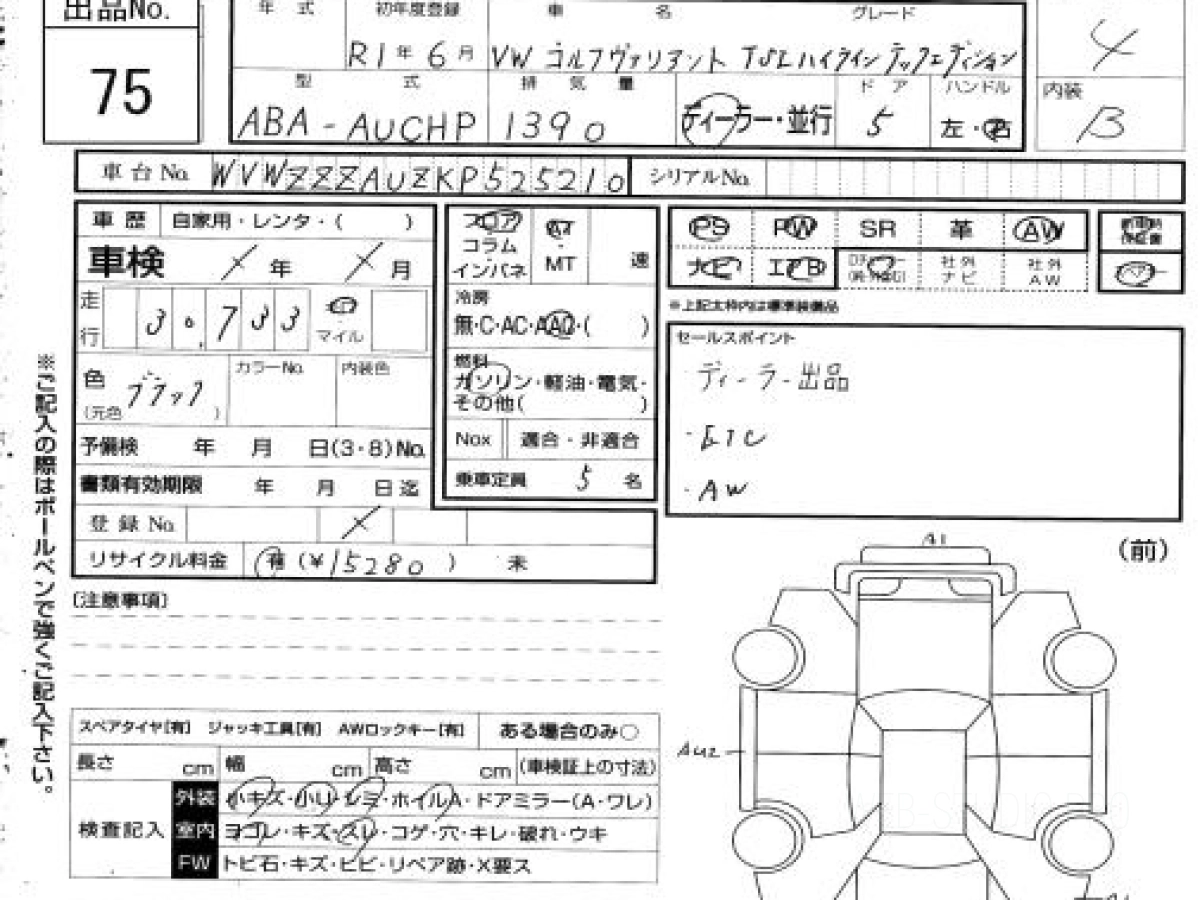 出品No.
75
年 式 初年度登録 車 名 グレード
R1年6月 VW ゴルフヴァリアント TSIハイライン テックエディション
4
型 式 排 気 量 ディーラー・並行 ド ア ハンドル
ABA-AUCHP 1390 5 左・右
内装
B
車台No. WVWZZZAUZKP525210 シリアルNo.
車 歴 自家用・レンタ・( )
車検 ╱ 年 ╱ 月
走行 30,733 マイル
色 ブラック
(元色 )
カラーNo. 内装色
予備検 年 月 日(3・8)No.
書類有効期限 年 月 日迄
登録 No.
リサイクル料金 有 (¥15280 ) 未
フロア
コラム
インパネ
AT
・
MT
速
冷房
無・C・AC・AAC・( )
燃料
ガソリン・軽油・電気・
その他( )
Nox 適合・非適合
乗車定員 5 名
PS PW SR 革 AW
ナビ エアB
社外ナビ 社外AW
※上記太枠内は標準装備品
セールスポイント
・ディーラー出品
・ETC
・AW
※ご記入の際はボールペンで強くご記入下さい。
〔注意事項〕
A1
(前)
AU2
スペアタイヤ[有] ジャッキ工具[有] AWロックキー[有] ある場合のみ○
長さ cm 幅 cm 高さ cm (車検証上の寸法)
検査記入
外装 小キズ・小リレミ・ホイルA・ドアミラー(A・ワレ)
室内 ヨゴレ・キズ・スレ・コゲ・穴・キレ・破れ・ウキ
FW トビ石・キズ・ヒビ・リペア跡・X要ス